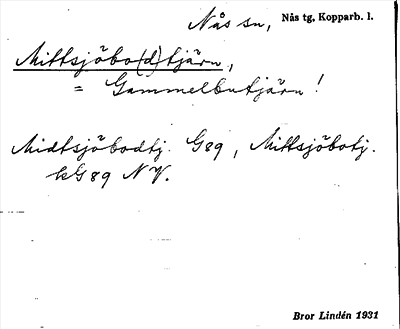 Nås sn, Nås tg, Kopparb. l.
Mittsjöbo(d)tjärn,
= Gammelbutjärn!
Midtsjöbodtj. G89, Mittsjöbotj.
kG89 NV.
Bror Lindén 1931